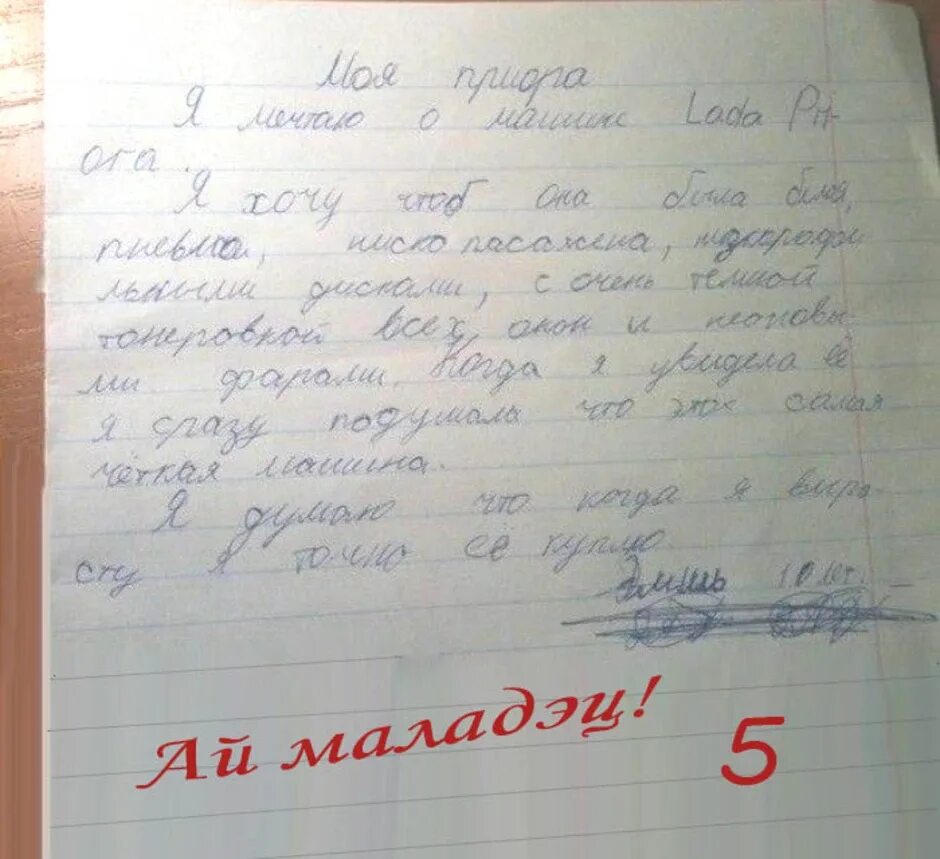 Моя приора
Я мечтаю о машине Lada Pri-
ora.
Я хочу чтоб она была белая,
пневма, ниско пасажена,
льными дисками, с очень темной
тонеровкой всех окон и неоновы
ми фарами. Когда я увидела её
я сразу подумала что это самая
чёткая машина.
Я думаю что когда я выра
сту я точно её куплю.
10 лет.
Ай маладэц!
5